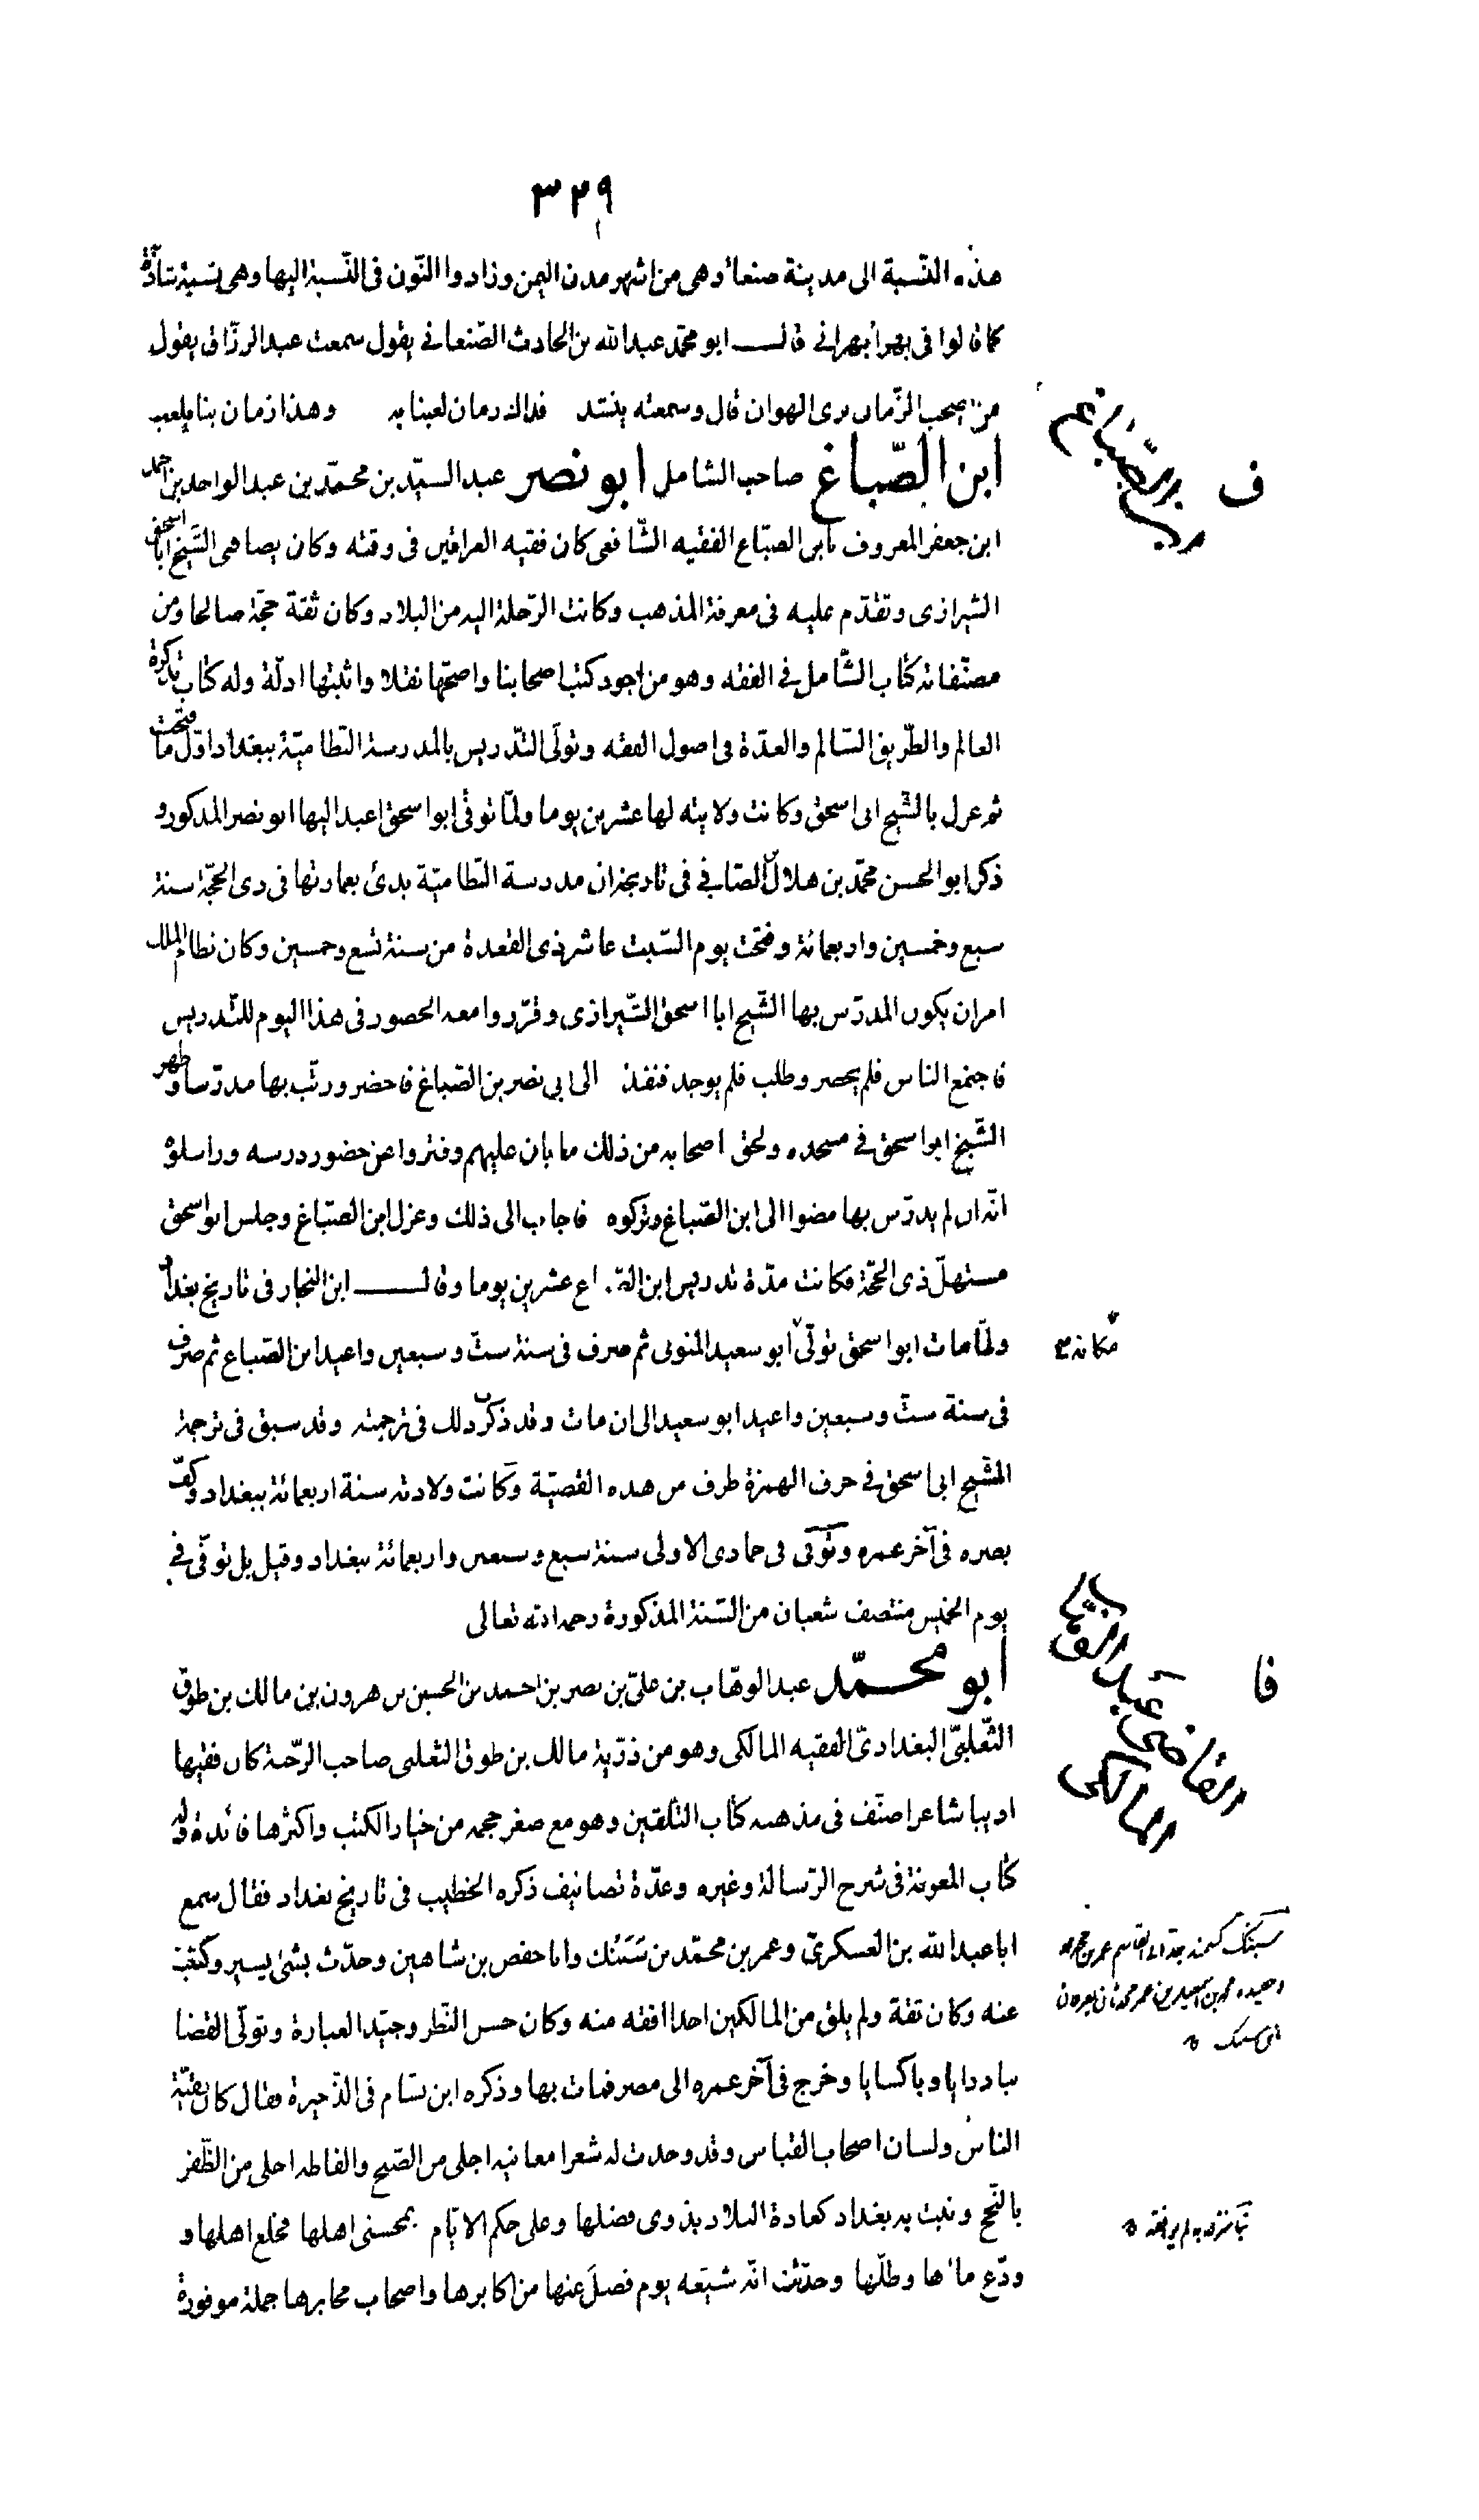 ٣٢٩
هذه النسبة الى مدينة صنعاء وهى من اشهر مدن اليمن وزادوا النّون فى النّسبة اليها وهى نسبة شاذّة
كما قالوا فى بهرا بهرانى قال ابو محمّد عبد الله بن الحارث الصّنعانى يقول سمعت عبد الرزّاق يقول
من يصحب الزّمان يرى الهوان قال وسمعته ينشد فذاك زمان لعبنا به وهذا زمان بنا يلعب
ابن الصّباغ صاحب الشامل ابو نصر عبد السيّد بن محمّد بن عبد الواحد بن احمد
ابن جعفر المعروف بابن الصبّاغ الفقيه الشّافعى كان فقيه العراقين فى وقته وكان يضاهى الشّيخ ابا اسحق
الشيرازى وتقدّم عليه فى معرفة المذهب وكانت الرّحلة اليه من البلاد وكان ثقة حجّة صالحا ومن
مصنّفاته كتاب الشّامل فى الفقه وهو من اجود كتب اصحابنا واصحّها نقلا واثبتها ادلّة وله كتاب تذكرة
العالم والطّريق السّالم والعدّة فى اصول الفقه وتولّى التّدريس بالمدرسة النّظاميّة ببغداد اوّل ما فتحت
ثم عزل بالشّيخ ابى اسحق وكانت ولايته لها عشرين يوما ولمّا توفّى ابو اسحق اعيد اليها ابو نصر المذكور و
ذكر ابو الحسن محمّد بن هلال الصّابى فى تاريخه ان مدرسة النّظاميّة بدئ بعمارتها فى ذى الحجّة سنة
سبع وخمسين واربعمائة وفتحت يوم السّبت عاشر ذى القعدة من سنة تسع وخمسين وكان نظام الملك
امر ان يكون المدرّس بها الشّيخ ابا اسحق الشّيرازى وقرّروا معه الحضور فى هذا اليوم للتّدريس
فاجتمع الناس فلم يحضر وطلب فلم يوجد فنفذ الى ابى نصر بن الصّباغ فاحضر ورتّب بها مدرّسا وظهر
الشّيخ ابو اسحق فى مسجده ولحق اصحابه من ذلك ما بان عليهم وفتروا عن حضور درسه وراسلوه
انّه ان لم يدرّس بها مضوا الى ابن الصّباغ وتركوه فاجاب الى ذلك وعزل ابن الصبّاغ وجلس ابو اسحق
مستهلّ ذى الحجّة فكانت مدّة تدريس ابن الصباغ عشرين يوما وقال ابن النجار فى تاريخ بغداد
ولمّا مات ابو اسحق تولّى ابو سعيد المتولى ثم صرف فى سنة ستّ وسبعين واعيد ابن الصّباغ ثم صرف
مكانه
فى سنة ستّ وسبعين واعيد ابو سعيد الى ان مات وقد ذكرت ذلك فى ترجمته وقد سبق فى ترجمة
الشّيخ ابى اسحق فى حرف الهمزة طرف من هذه القضيّة وكانت ولادته سنة اربعمائة ببغداد وكفّ
بصره فى آخر عمره وتوفّى فى جمادى الاولى سنة سبع وسبعين واربعمائة ببغداد وقيل بل توفّى فى
يوم الخميس منتصف شعبان من السّنة المذكورة رحمه الله تعالى
ابو محمّد عبد الوهّاب بن علىّ بن نصر بن احمد بن الحسين بن هرون بن مالك بن طوق
الثّعلبىّ البغدادىّ الفقيه المالكى وهو من ذرّية مالك بن طوق الثعلبى صاحب الرّحبة كان فقيها
اديبا شاعرا صنّف فى مذهبه كتاب التلقين وهو مع صغر حجمه من خيار الكتب واكثرها فائدة وله
كتاب المعونة فى شرح الرّسالة وغيره وعدّة تصانيف ذكره الخطيب فى تاريخ بغداد فقال سمع
ابا عبد الله بن العسكرىّ وعمر بن محمّد بن سَبَنْك وابا حفص بن شاهين وحدّث بشئ يسير وكتبت
عنه وكان ثقة ولم يلق من المالكيين احدا افقه منه وكان حسن النّظر وجيّد العبارة وتولّى القضا
ببادرايا وباكسايا وخرج فى آخر عمره الى مصر فمات بها وذكره ابن بسّام فى الذّخيرة فقال كان بقيّة
الناس ولسان اصحاب القياس وقد وجدت له شعرا معانيه اجلى من الصّبح والفاظه احلى من الظّفر
بالنّجح ونبت به بغداد كعادة البلاد بذوى فضلها وعلى حكم الايّام بمحسنى اهلها فخلع اهلها و
ودّع ماءها وظلّها وحدّثت انّه شيّعه يوم فصل عنها من اكابرها واصحاب محابرها جملة موفورة
ف
ابن الصّبّاغ
فا
القاضى عبد الوهاب
المالكى